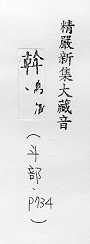 精嚴新集大藏音
斡烏活
(斗部、p734)